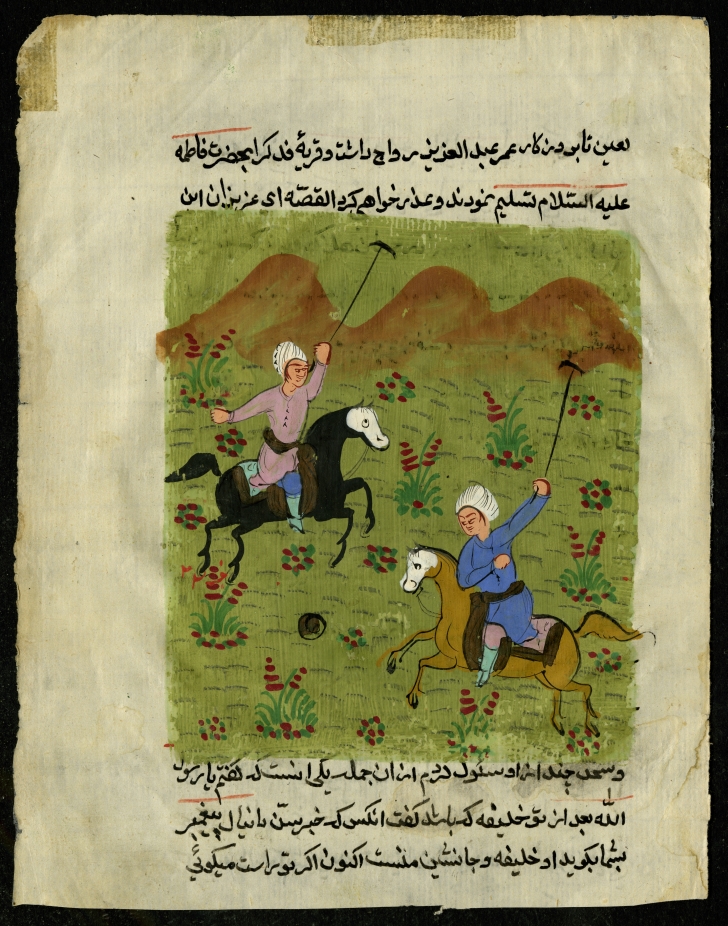 تعین تابودن کار عمر عبد العزیز رواج داشت و قریهٔ فدک را بحضرت فاطمه
علیه السّلام تسلیم نمودند و عذر خواهم کرد القصّه ای عزیزان این
و سخن چند از او سئول کردم از ان جمله یکی انست که گفتم یا رسول
اللّه بعد از تو خلیفه که باشد گفت انکس که خبر دانیال پیغمبر
بشما بکوید او خلیفه و جانشین منست اکنون اکر تو راست میکوئی